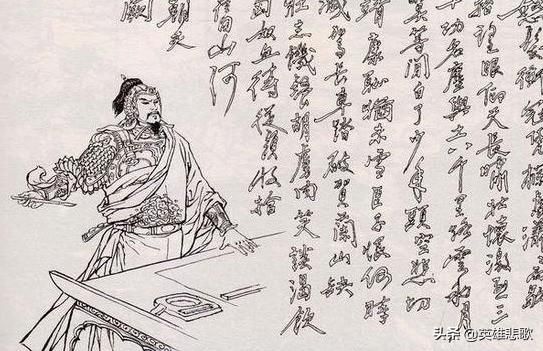 怒髮衝冠憑欄
抬望眼仰天長嘯壯懷激烈三
十功名塵與土八千里路雲和月
莫等閒白了少年頭空悲切
靖康恥猶未雪臣子恨何時
滅駕長車踏破賀蘭山缺
壯志饑餐胡虜肉笑談渴飲
匈奴血待從頭收拾
舊山河
朝天
闕
头条 @英雄悲歌